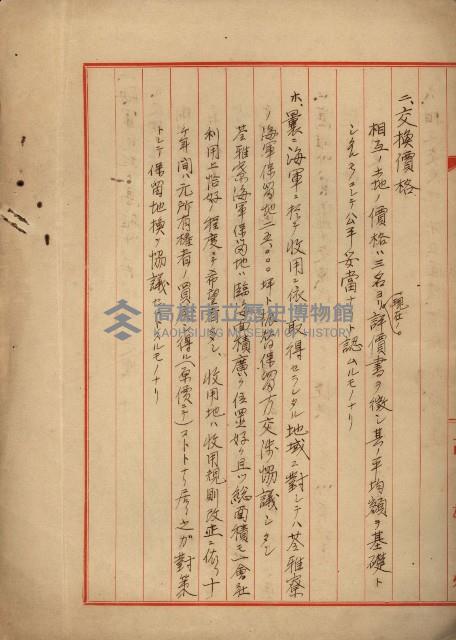 二、交換價格
相互ノ土地ノ價格ハ三名ヨリ評價書ヲ徴シ其ノ平均額ヲ基礎ト
(現在ノ)
シタルモノニシテ公平妥當ナリト認ムルモノナリ
ホ、曩ニ海軍ニ於テ收用ニ依リ取得セラレタル地域ニ對シテハ苓雅寮
ノ海軍保留地二五、〇〇〇坪ト
保留方交渉協議シタシ
苓雅寮海軍保留地ハ臨海面積廣ク位置好ク且ツ総面積モ會社
利用上恰好ノ程度ニテ希望者多シ、收用地ハ收用規則改正ニ依リ十
ケ年間ハ元所有權者ノ買戻取得ル(原價ニテ)コトトナリ居リ之ガ對策
トシテ保留地換ヲ協議セラレタルモノナリ
高雄市立歷史博物館
KAOHSIUNG MUSEUM OF HISTORY